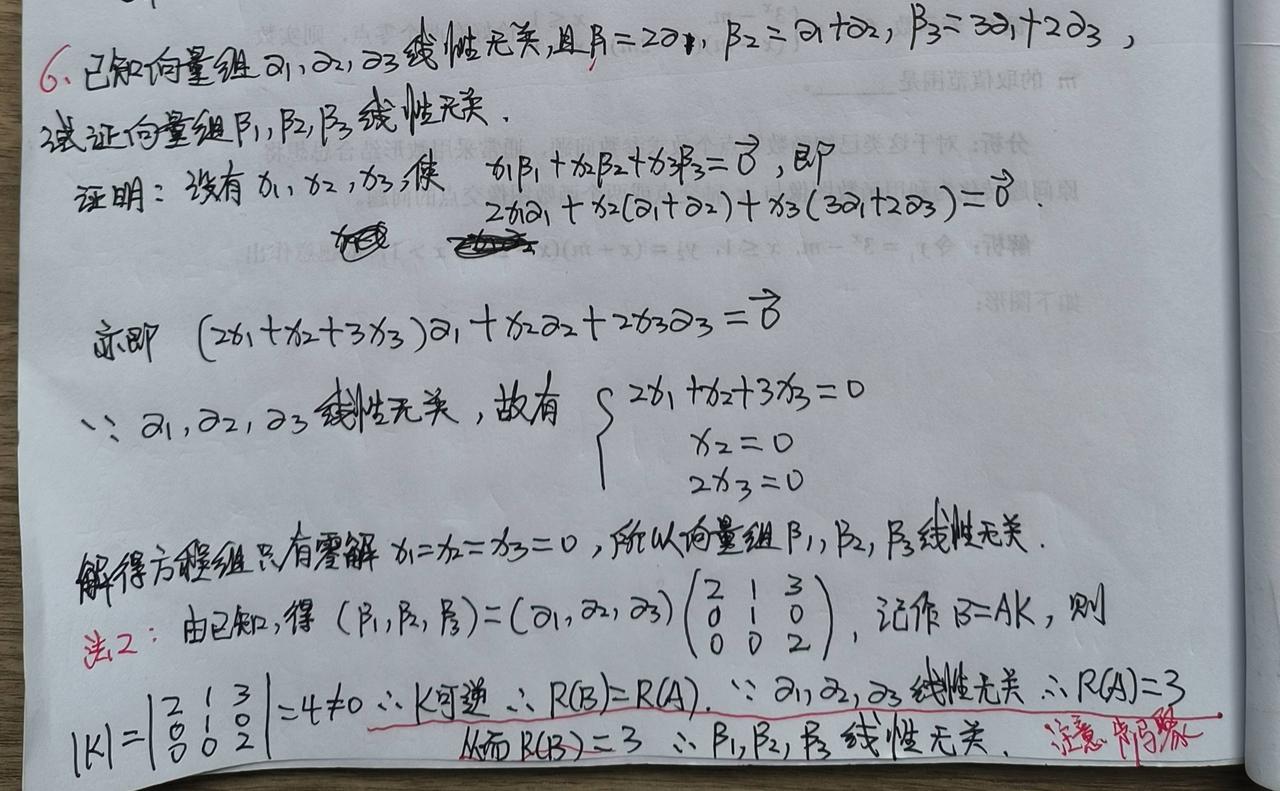 6、已知向量组α1,α2,α3线性无关,且β1=2α1,β2=α1+α2,β3=3α1+2α3,
试证向量组β1,β2,β3线性无关.
证明:设有x1,x2,x3,使 x1β1+x2β2+x3β3=0⃗,即
2x1α1+x2(α1+α2)+x3(3α1+2α3)=0⃗.
亦即 (2x1+x2+3x3)α1+x2α2+2x3α3=0⃗
∵α1,α2,α3线性无关,故有 { 2x1+x2+3x3=0
x2=0
2x3=0
解得方程组只有零解x1=x2=x3=0,所以向量组β1,β2,β3线性无关.
法2: 由已知,得(β1,β2,β3)=(α1,α2,α3)(2 1 3
0 1 0
0 0 2),记作B=AK,则
|K|=|2 1 3
0 1 0
0 0 2|=4≠0∴K可逆∴R(B)=R(A).∵α1,α2,α3线性无关∴R(A)=3
从而R(B)=3 ∴β1,β2,β3线性无关. 注意步骤
m 的取值范围是
如下图形: